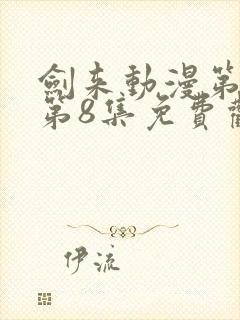 劍來動漫第
第8集免費
伊流